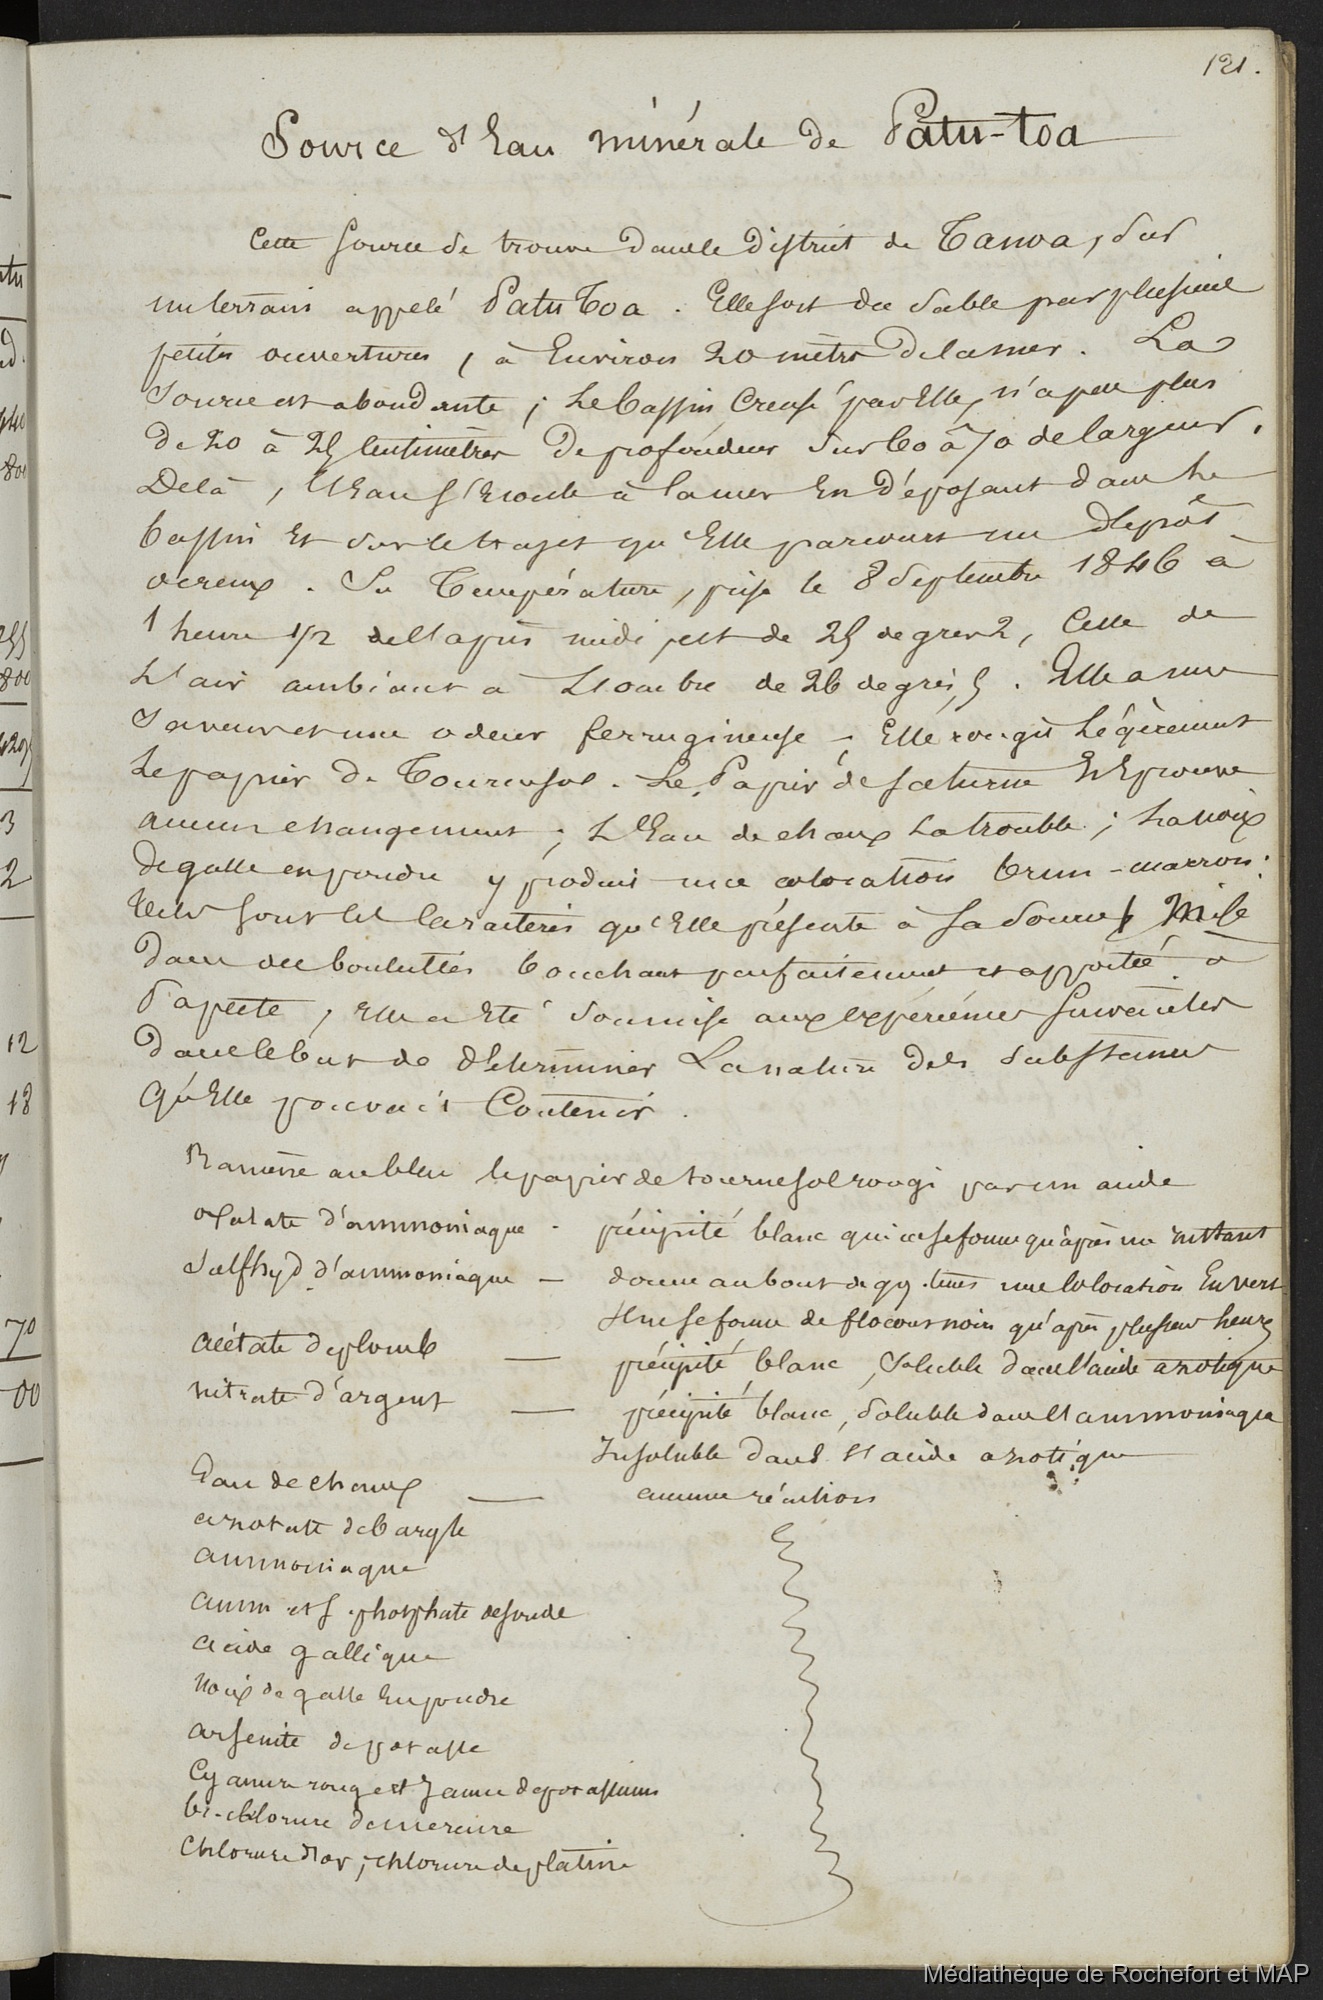 121.
Source d'Eau minérale de Patu-toa
Cette source se trouve dans le district de Tanoa, sur
un terrain appelé Patu Toa. Elle sort du sable par plusieurs
petites ouvertures, à Environ 20 mètres de la mer. La
source est abondante ; Le bassin Creusé par Elle, n'a pas plus
de 20 à 25 Centimètres De profondeur sur 60 à 70 de largeur.
De là, L'Eau s'Ecoule à la mer En déposant dans Le
bassin Et sur le trajet qu'Elle parcourt un dépôt
ocreux. Sa Température, prise le 8 Septembre 1846 à
1 heure 1/2 de l'après midi, est de 25 degrés 2, Celle de
L'air ambiant à L'ombre de 26 degrés, 5. Elle a une
saveur et une odeur ferrugineuse - Elle rougit Légèrement
Le papier De Tournesol. Le Papier de saturne N'Eprouve
aucun changement ; L'Eau de chaux La trouble ; La noix
De galle en poudre y produit une coloration brun-marron.
Tels sont les Caractères qu'Elle présente à sa source. Mise
Dans des bouteilles bouchant parfaitement et apportée à
Papeete, Elle a Eté soumise aux expériences suivantes
Dans le but de Déterminer La nature Des substances
Qu'Elle pouvait Contenir.
Ramène au bleu le papier de tournesol rougi par un acide
oxalate d'ammoniaque - précipité blanc qui ne se forme qu'après un instant
Sulfhyd d'ammoniaque - donne au bout de qq. tems une Coloration En vert
Il ne se forme de flocons noirs qu'après plusieurs heures
acétate de plomb — précipité blanc, soluble dans l'acide azotique
nitrate d'argent — précipité blanc, soluble dans l'ammoniaque
Insoluble dans l'acide azotique
Eau de chaux — aucune réaction
azotate de baryte
ammoniaque
amm et s. phosphate de soude
acide gallique
Noix de galle En poudre
arsenite de potasse
Cyanure rouge et Jaune de potassium
bi-chlorure de mercure
Chlorure d'or, chlorure de platine
Médiathèque de Rochefort et MAP